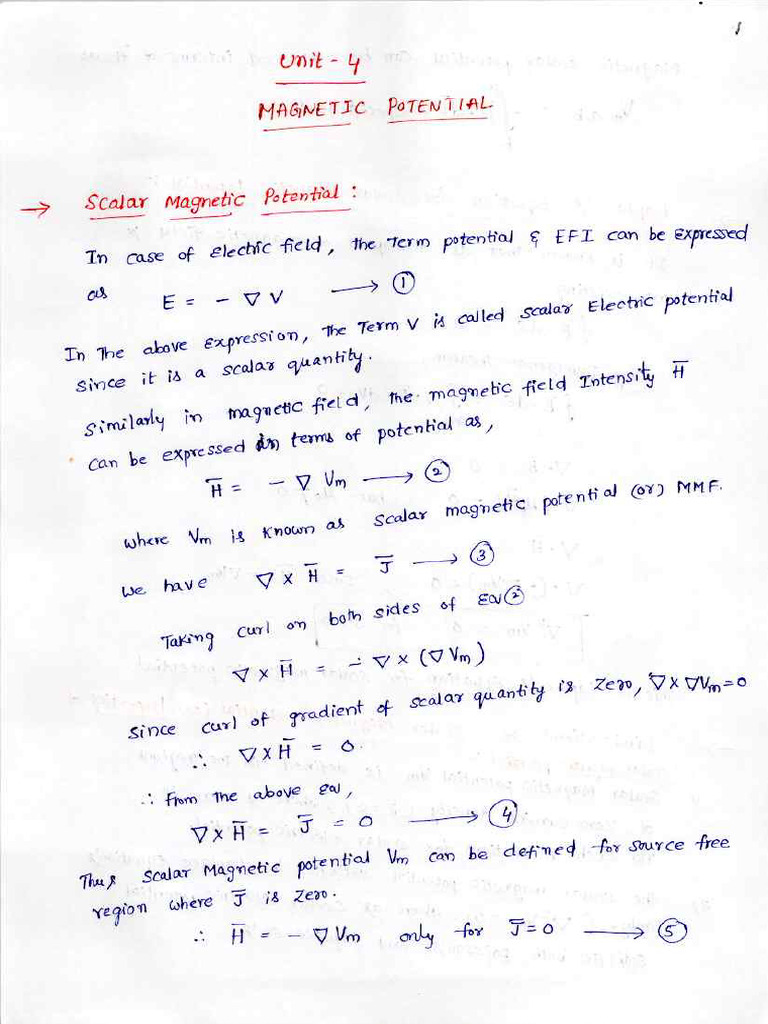 1
Unit - 4
MAGNETIC POTENTIAL
→ Scalar Magnetic Potential :
In case of electric field, the Term potential & EFI can be expressed
as E = - ∇ V ⟶ ①
In the above expression, the Term V is called scalar Electric potential
since it is a scalar quantity.
Similarly in magnetic field, the magnetic field Intensity H̅
can be expressed in terms of potential as,
H̅ = - ∇ Vm ⟶ ②
where Vm is known as scalar magnetic potential (or) MMF.
we have ∇ × H̅ = J̅ ⟶ ③
Taking curl on both sides of EQ ②
∇ × H̅ = - ∇ × (∇ Vm)
since curl of gradient of scalar quantity is zero, ∇ × ∇Vm = 0
∴ ∇ × H̅ = 0.
∴ from the above eq,
∇ × H̅ = J̅ = 0 ⟶ ④
Thus scalar Magnetic potential Vm can be defined for source free
region where J̅ is zero.
∴ H̅ = - ∇ Vm only for J̅ = 0 ⟶ ⑤